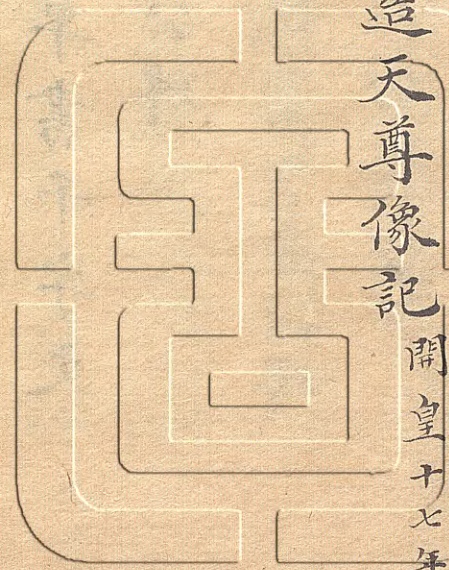 造天尊像記開皇十七年